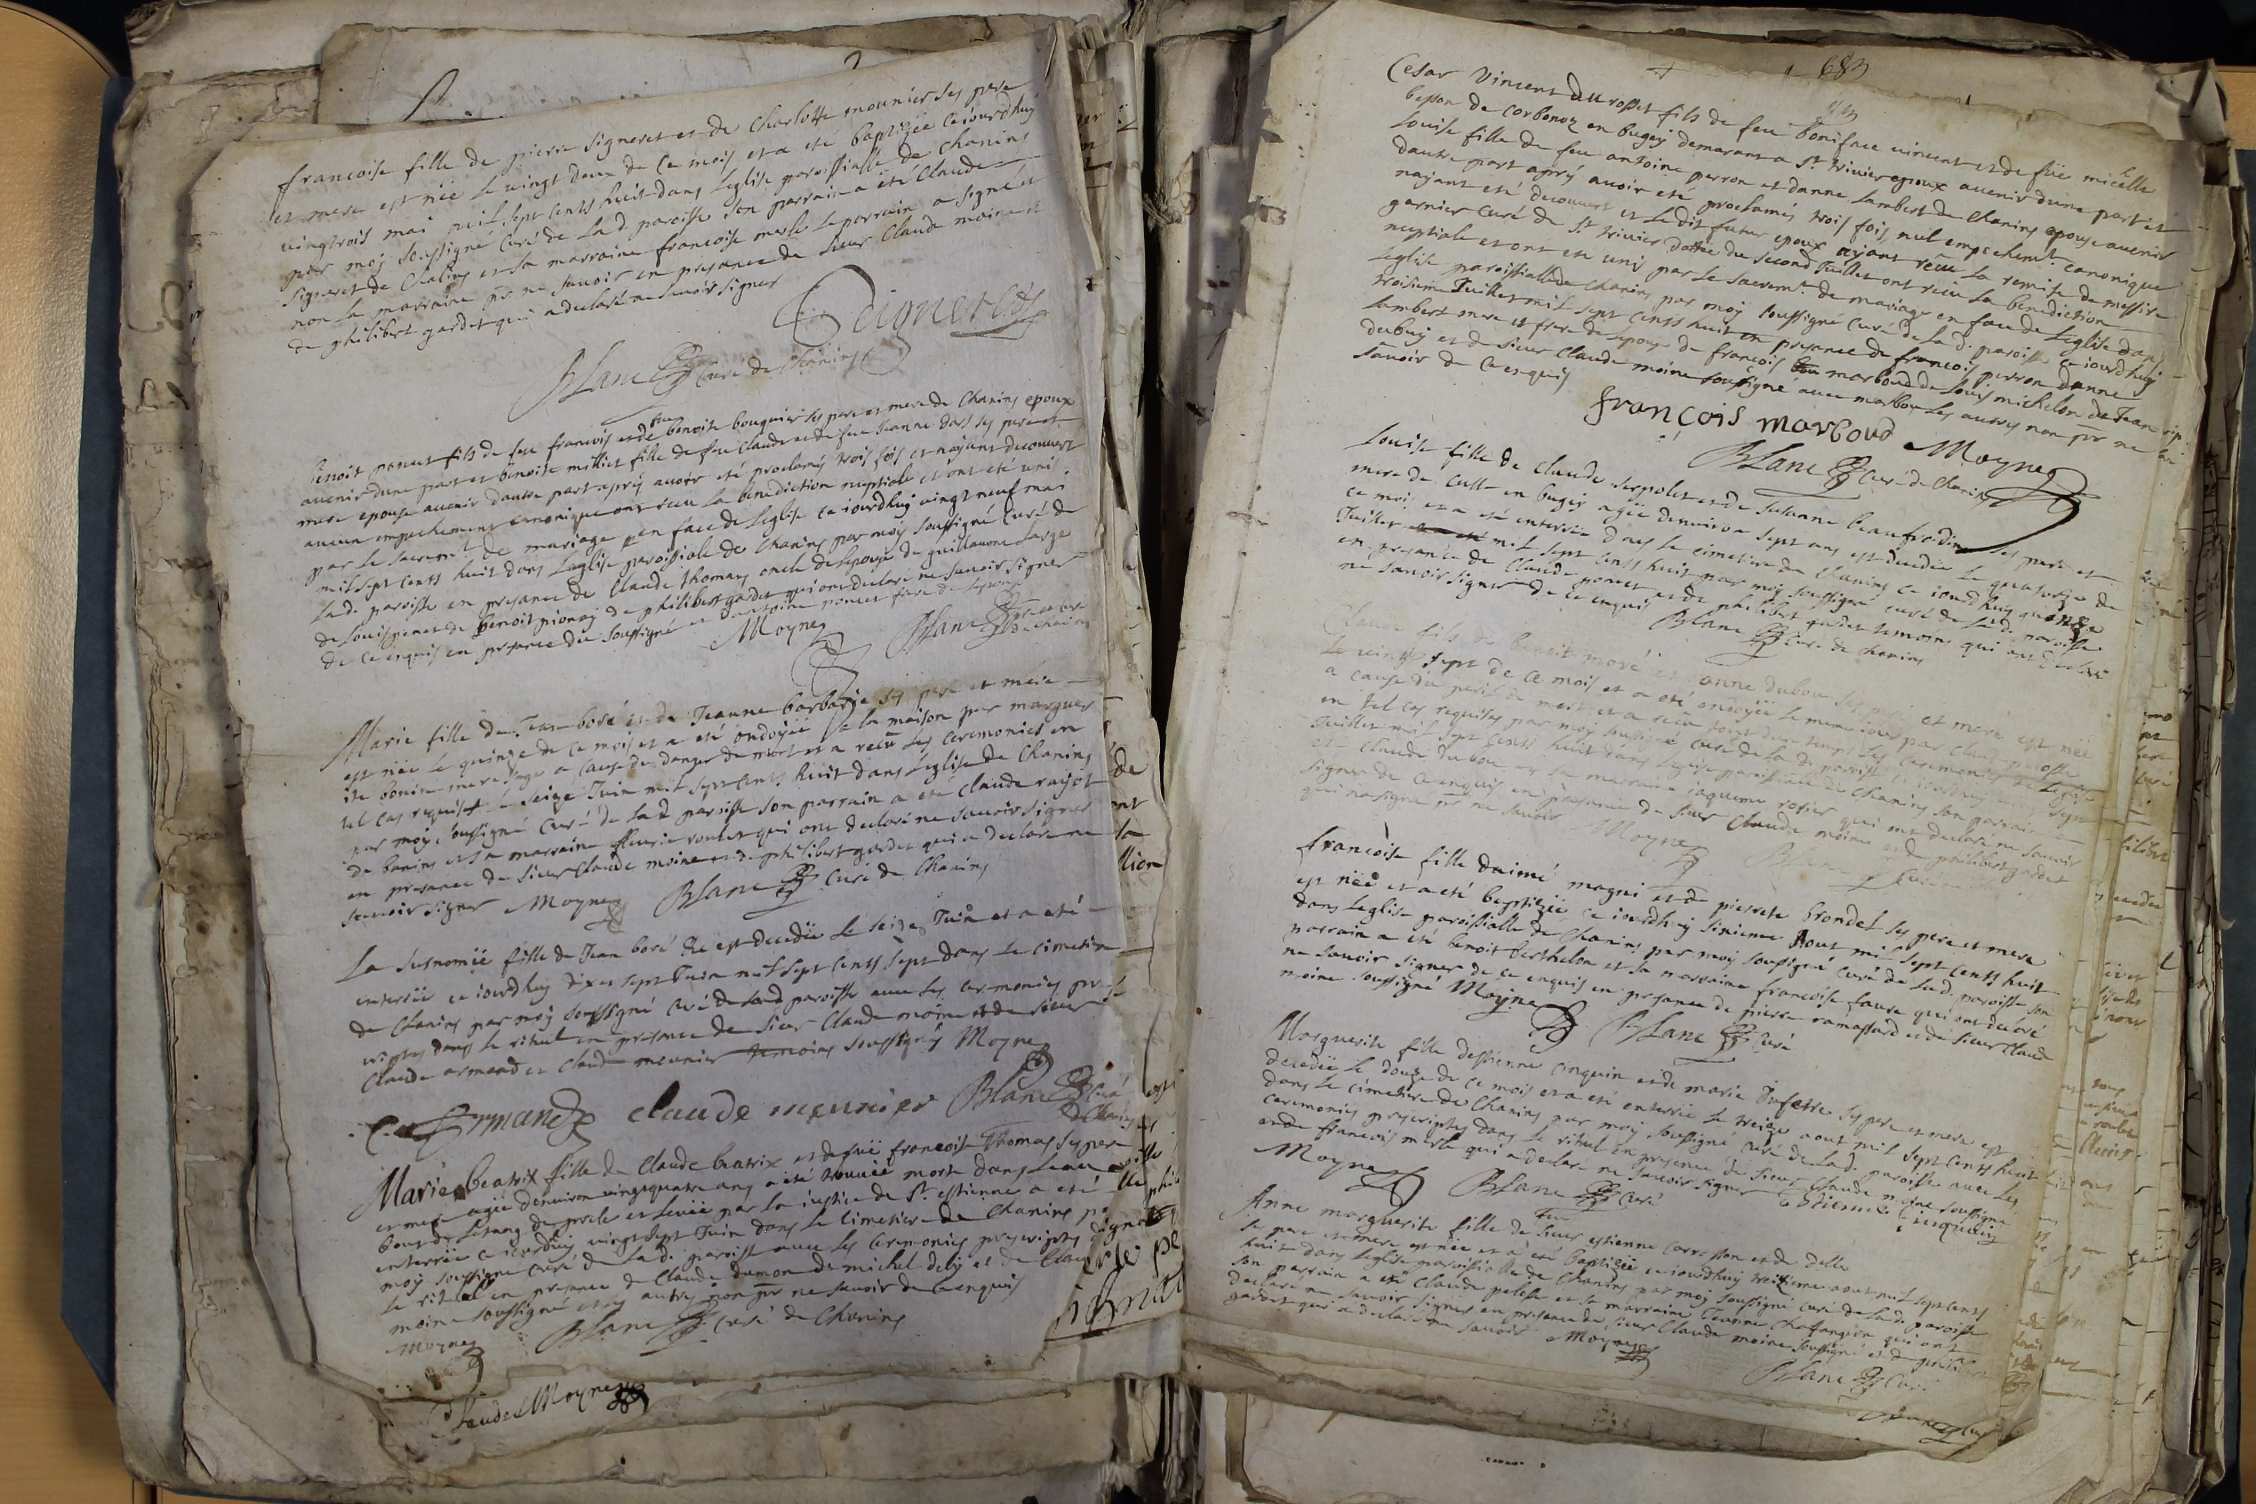 francoise fille de pierre signeret et de charlotte mounier ses pere
et mere est née le vingt deux de ce mois et a eté baptizée ce iourdhuy
vingtrois mai mil sept cents huit dans leglise paroissialle de chanins
par moy soussigné curé de lad. paroisse son parrain a eté claude
signeret de chalins et sa marraine francoise merle le parrain a signé et
non la marraine pr ne savoir en presance de sieur claude moine et
de philibert gardet qui a declaré ne savoir signer
Signeret
Blanc curé de chanins
benoit ponet fils de feu francois et de feu benoite bouquier ses pere et mere de chanins epoux
avenir dune part et benoite milliet fille de feu claude et de feu Jeanne ses pere et
mere epouse avenir dautre part apres avoir eté proclamés trois fois et nayant decouvert
aucun empechement canonique ont receu la benediction nuptiale et ont eté unis
par le sacremt de mariage en face de leglise ce iourdhuy vingt neuf mai
mil sept cents huit dans leglise paroissiale de chanins par moy soussigné curé de
lad. paroisse en presance de claude thomas oncle de lepouse de guillaume large
de louis ponet de benoit pionay de philibert gardet qui ont declaré ne savoir signer
de ce enquis en presance du soussigné et dantoine ponet frere de lepoux
Moyne Blanc curé de chanins
Marie fille de Jean boré et de Jeanne barbarie ses pere et mere
est née le quinze de ce mois et a eté ondoyée a la maison par marguer
ite bonin mere sage a cause du danger de mort et a receu les ceremonies en
tel cas requises le seize Juin mil sept cents huit dans leglise de chanins
par moy soussigné curé de lad. paroisse son parrain a eté claude rayot
de banins et sa marraine fleurie roulet qui ont declaré ne savoir signer
en presance de sieur claude moine et de philibert gardet qui a declaré ne
savoir signer Moyne Blanc curé de chanins
La susnomée fille de Jean boré est decedée le seize Juin et a eté
enterrée ce iourdhuy dix et sept Juin mil sept cents sept dans le cimetiere
de chanins par moy soussigné curé de lad paroisse avec les ceremonies pres
criptes dans le rituel en presance de sieur claude moine et de sieur
claude armand et claude meunier temoins soussignés Moyne
C. Armand claude meunier Blanc curé
de chanins
Marie beatrix fille de claude beatrix et de feüe francoise Thomas ses pere
et mere agée denviron vingtquatre ans a eté trouvée morte dans leau
bout de letang de procle et levée par la iustice de St estienne a eté
enterrée ce iourdhuy vingt sept Juin dans le cimetiere de chanins par
moy soussigné curé de lad. paroisse avec les ceremonies prescriptes dans
le rituel en presance de claude dumon de michel dely et de claude
moine soussigné et les autres non pr ne savoir de ce enquis
Moyne Blanc curé de chanins
Claude Moyne
683
Cesar vincent du rosset fils de feu boniface vincent et de füe micelle
besson de corbonoz en bugey demeurant a St trivier epoux avenir dune part et
Louise fille de feu antoine perron et danne lambert de chanins epouse avenir
dautre part apres avoir eté proclamés trois fois nul empechemt canonique
nayant eté decouvert et ledit futur epoux ayant receu la remise de messire
garnier curé de St trivier dattée du second Juillet ont receu la benediction
nuptiale et ont eté unis par le sacremt de mariage en face de leglise dans
leglise paroissialle de chanins par moy soussigné curé de lad. paroisse ce iourdhuy
troisieme Juillet mil sept cents huit en presance de francois perron danne
lambert mere et frere de lepouse de francois marboud de louis michelon de Jean
dubuy et de sieur claude moine soussigné avec marbou les autres non pr ne
savoir de ce enquis
françois marboud Moyne
Blanc curé de chanins
Louise fille de claude serpolet et de Susanne beaufredin ses pere et
mere de culle en bugey agée denviron sept ans est decedée le quatorze de
ce mois et a eté enterrée dans le cimetiere de chanins ce iourdhuy quinze
Juillet mil sept cents huit par moy soussigné curé de lad. paroisse
en presance de claude ponet et de philibert gardet temoins qui ont declaré
ne savoir signer de ce enquis Blanc curé de chanins
Claude fils de benoit moré et danne dubou ses pere et mere est né
le vingt sept de ce mois et a eté ondoyé le mesme iour par
a cause du peril de mort et a receu les ceremonies de leglise
en tel cas requises par moy soussigné curé de la d. paroisse
Juillet mil sept cents huit dans leglise paroissialle de chanins son parrain
eté claude dubou et sa marraine Jaqueme rosier qui ont declaré ne savoir
signer de ce enquis en presance de sieur claude moine et de philibert gardet
qui na signé pr ne savoir Moyne Blanc curé
francoise fille daimé magni et de pierrete brondel ses pere et mere
est née et a eté baptizée ce iourdhuy sixieme Aout mil sept cents huit
dans leglise paroissialle de chanins par moy soussigné curé de lad. paroisse son
parrain a eté benoit berthelon et sa marraine francoise faure qui ont declaré
ne savoir signer de ce enquis en presance de pierre ramassard et de sieur claude
moine soussigné Moyne Blanc curé
Marguerite fille destienne cinquin et de marie Dufetre ses pere et mere est
decedée le douze de ce mois et a eté enterrée le treize aout mil sept cents huit
dans le cimetiere de chanins par moy soussigné curé de lad. paroisse avec les
ceremonies prescriptes dans le rituel en presence de sieur claude moine soussigné
et de francois merle qui a declaré ne savoir signer Estienne Cinquin
Moyne Blanc curé
Anne marguerite fille de sieur estienne corrosson et de delle
se pere et mere est née et a eté baptizée ce iourdhuy treizieme aout mil sept cents
huit dans leglise paroissialle de chanins par moy soussigné curé de lad. paroisse
son parrain a eté claude pelosse et sa marraine Jeanne chafangion qui ont
declaré ne savoir signer en presance de sieur claude moine soussigné et de philibert
gardet qui a declaré ne savoir Moyne
Blanc curé